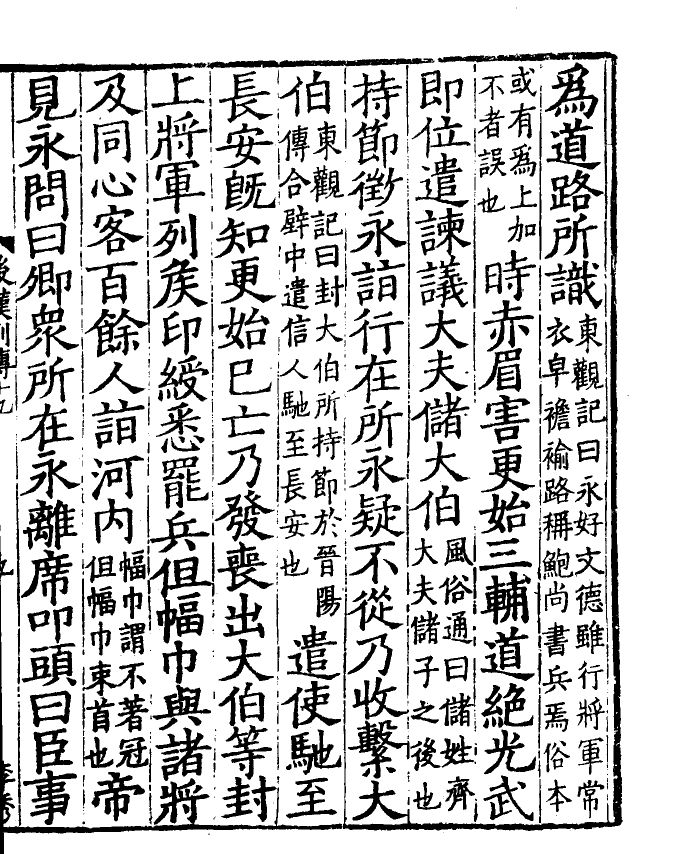 爲道路所識東觀記曰永好文德雖行將軍常衣皁襜褕路稱鮑尚書兵焉俗本
或有爲上加不者誤也時赤眉害更始三輔道絶光武
即位遣諫議大夫儲大伯風俗通曰儲姓齊大夫儲子之後也
持節徵永詣行在所永疑不從乃收繫大
伯東觀記曰封大伯所持節於晉陽傳合壁中遣信人馳至長安也遣使馳至
長安旣知更始已亡乃發喪出大伯等封
上將軍列矦印綬悉罷兵但幅巾與諸將
及同心客百餘人詣河内幅巾謂不著冠但幅巾束首也帝
見永問曰卿衆所在永離席叩頭曰臣事
後漢列傳十九